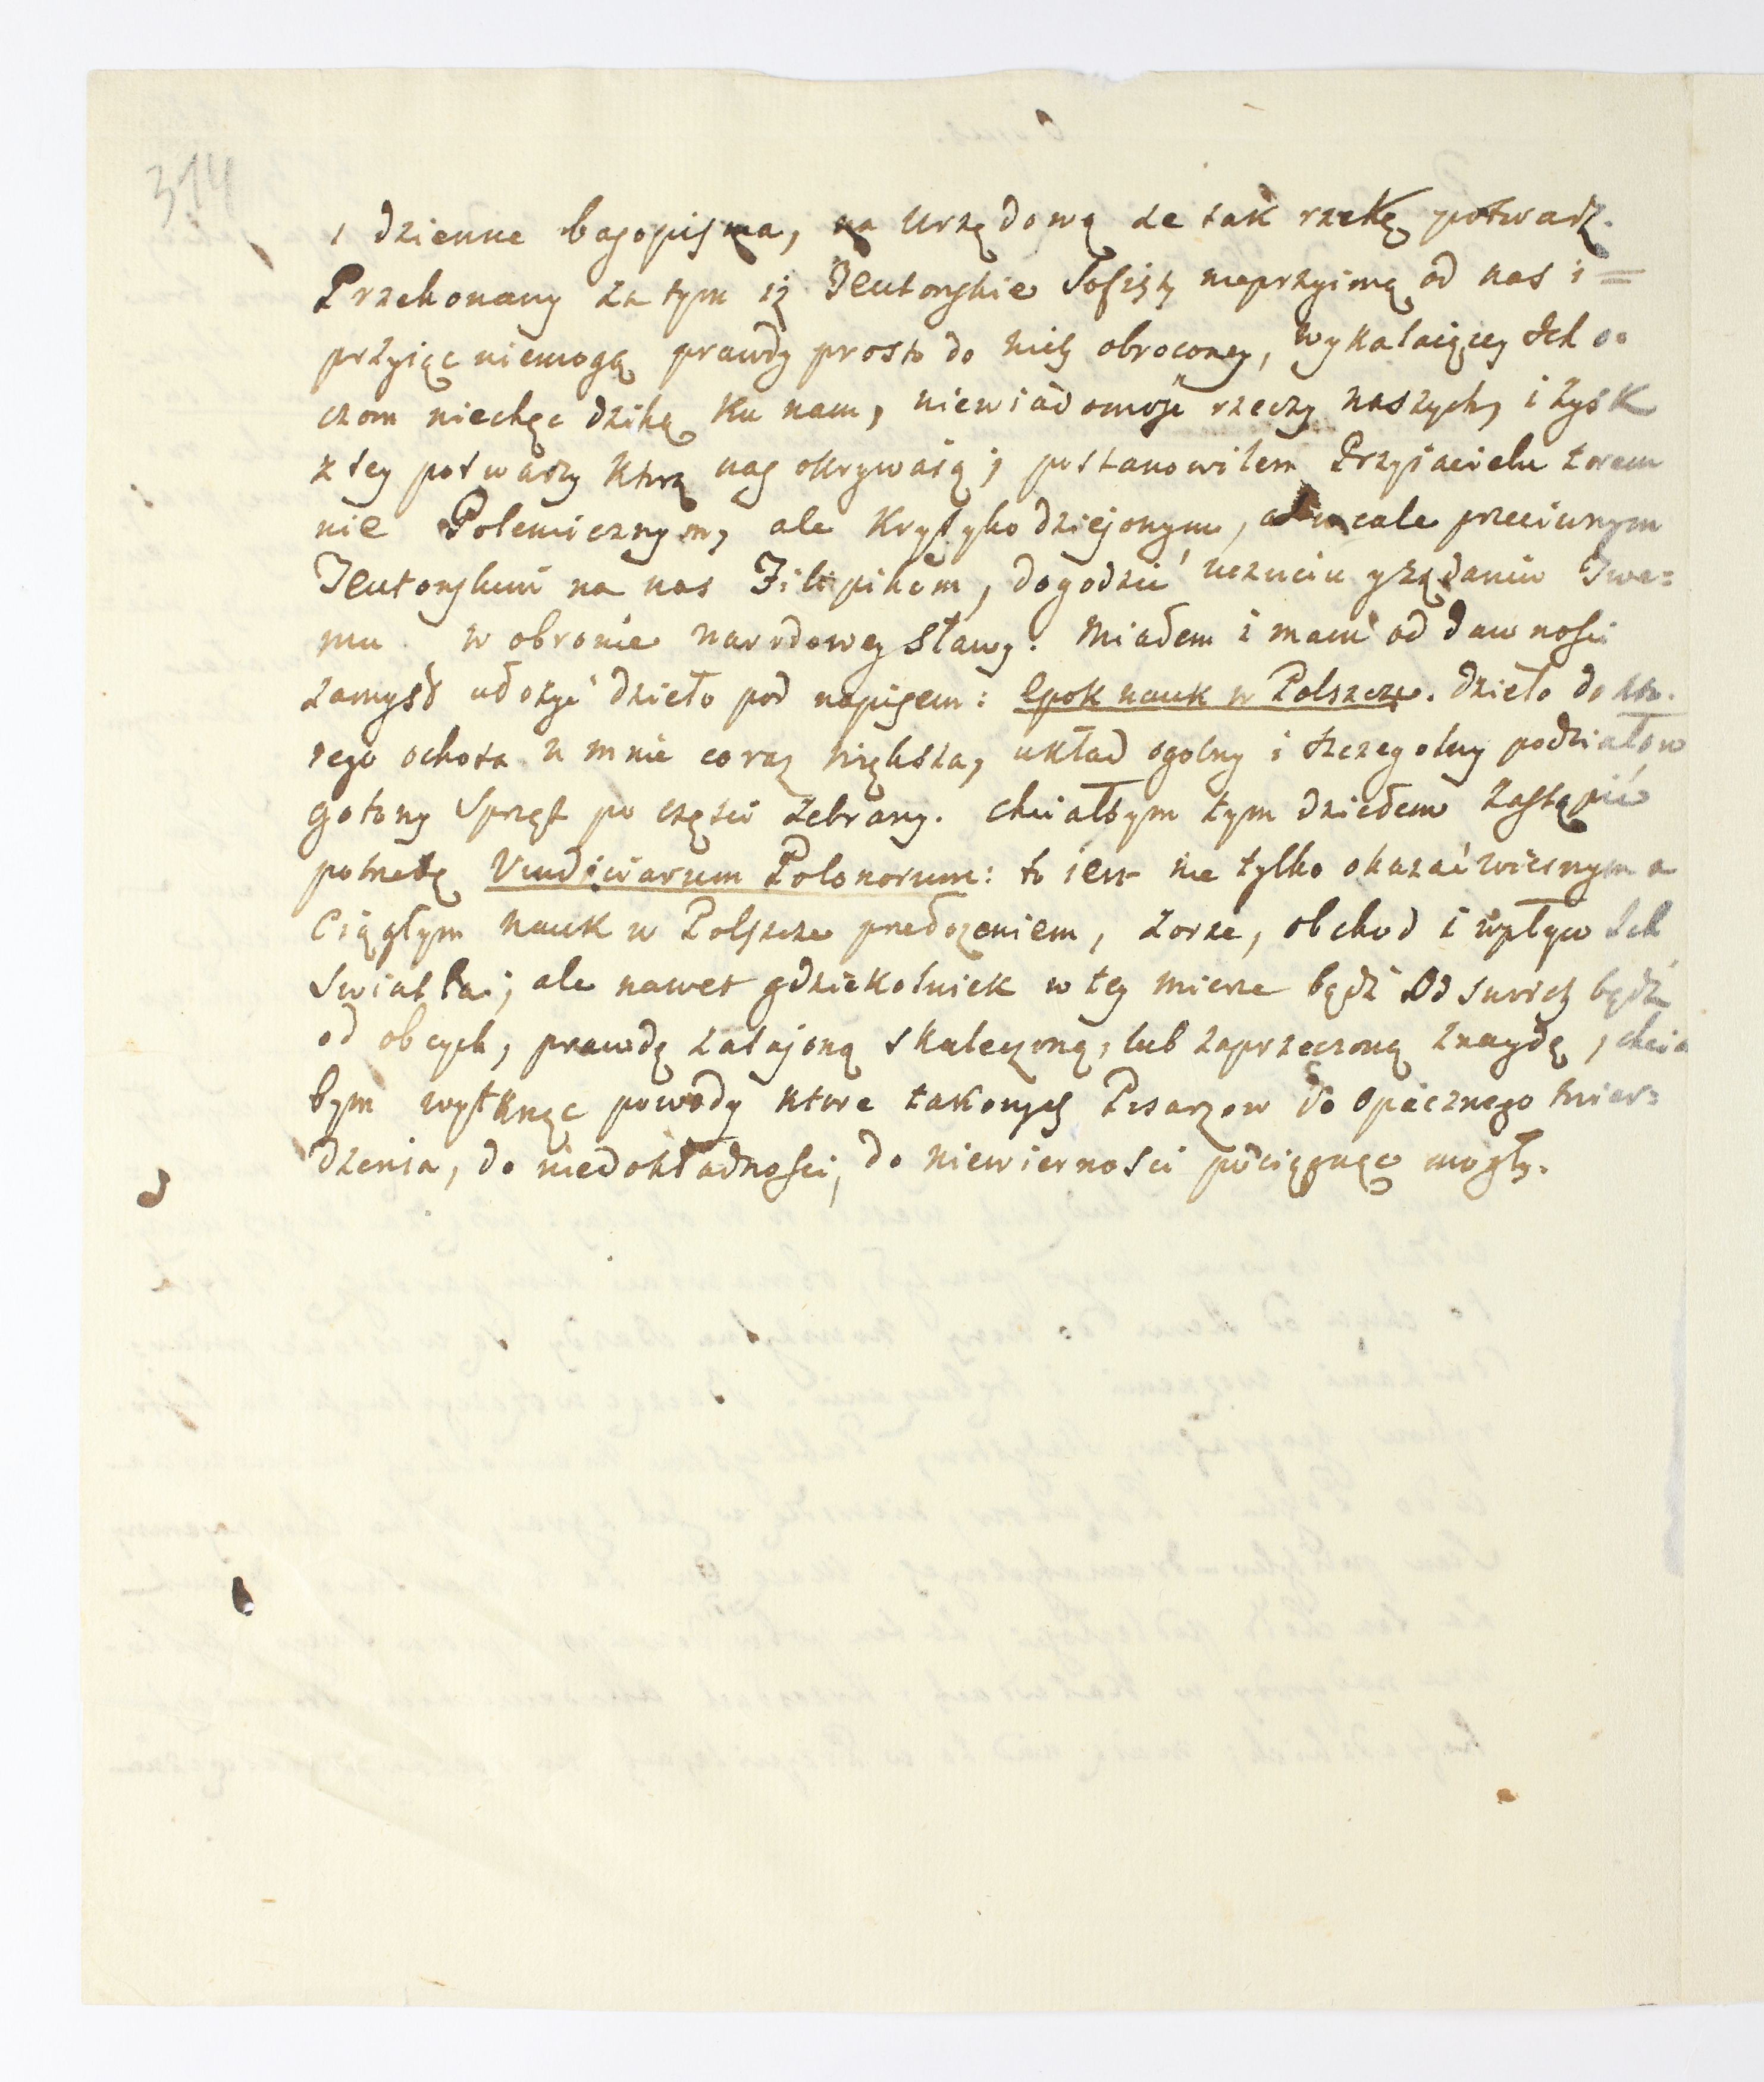 314
i dzienne bagopisma, na Urzędową że tak rzekę potwarz.
Przekonany za tym iż Teutońskie Sofisty nieprzyimą od nas i =
przyiąc niemogą prawdy prosto do nich obroconey, wykalaiącey Ich o-
czom niechęc dziką ku nam, niewiadomość rzeczy naszych, i zysk
z tey potwarzy ktorą nas okrywaią; postanowiłem Przyiacielu torem
nie Polemicznym, ale Krytyko dziejonym, a wcale przeciwnym
Teutońskim na nas Filipikom, dogodzić uczuciu y żądaniu Twe=
mu w obronie narodowey Sławy. Miałem i mam od dawności
zamysł ułożyć dzieło pod napisem: Epok nauk w Polszcze. dzieło do kto-
rego ochota u mnie coraz większa, układ ogolny i szczegolny podziałow
gotowy Sprzęt po części zebrany. chciałbym tym dziełem zastąpić
potrzebę Vindiciarum Polonorum: to iest nie tylko okazać wiernym a
Ciągłym nauk w Polszcze przedłożeniem, zorze, obchod i wpływ Ich
Swiatła; ale nawet gdziekolwiek w tey mierze bądź Od swoich bądź
od obcych, prawdę zatajoną skaleczoną, lub zaprzeczoną znaydę, chcia
bym wytknąc powody ktore takowych Pisarzow do opacznego twier=
dzenia, do niedokładności, do niewierności pociągnąc mogły.